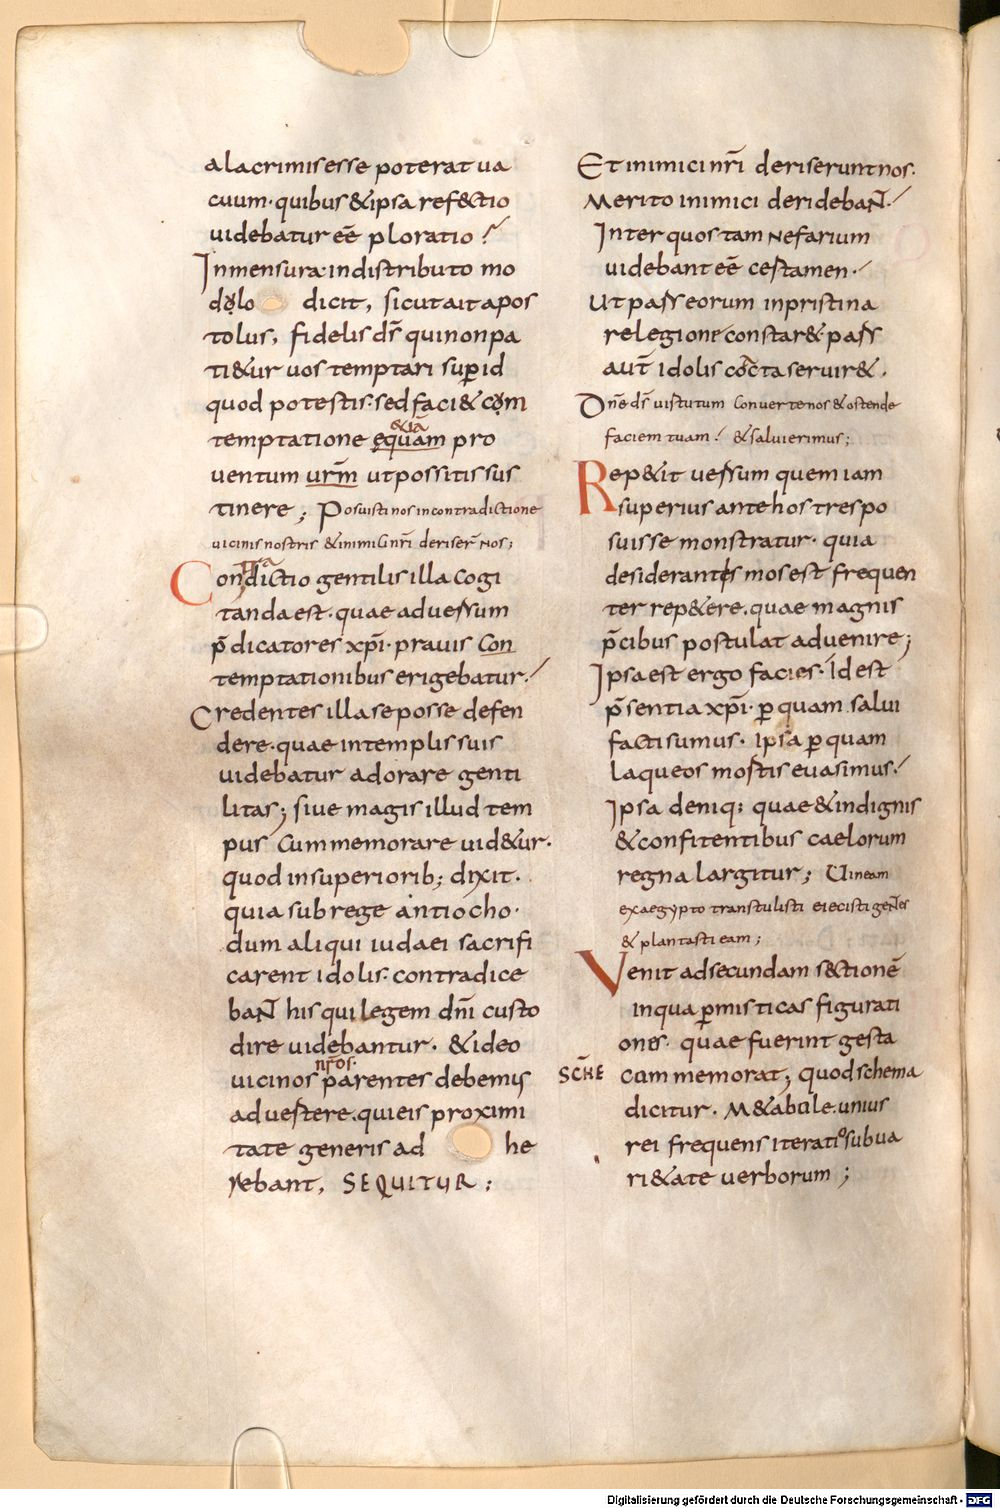 alacrimisesse poterat ua
cuum· quibus &ipsa ref&ctio
uidebatur eē ploratio
Inmensura· indistributo mo
dolo dicit, sicutait apos
tolus, fidelis d̄s quinonpa
ti&ur uos temptari sup̄ id
quod potestis· sed faci& com
&iā
temptatione equam pro
uentum ur̄m ut possitis sus
tinere ; Posuisti nos incontradictione
uicinis nostris &inimici nr̄i deriser̄ nos;
Contradictio gentilis illa cogi
tanda est· quae aduersum
p̄dicatores xp̄i· prauis con
temptationibus erigebatur·
Credentes illa se posse defen
dere· quae intemplis suis
uidebatur adorare genti
litas; siue magis illud tem
pus Cummemorare uid&ur·
quod insuperiorib; dixit·
quia sub rege antiocho·
dum aliqui iudaei sacrifi
carent idolis· contradice
baNT his qui legem dn̄i custo
dire uidebantur· &ideo
nr̄os·
uicinos parentes debemus
aduertere· quieis proximi
tate generis ad he
rebant, SEQUITUR ;
Et inimici nr̄i deriserunt nos·
Merito inimici deridebaNT·
Inter quos tam nefarium
uidebant eē certamen·
Ut pars eorum inpristina
relegione constar& pars
aut̄ idolis cocta seruir&·
Dn̄e d̄s uirtutum Conuerte nos &ostende
faciem tuam &salui erimus;
Rep&it uersum quem iam
superius ante hos tres po
suisse monstratur· quia
desiderantis mos est frequen
ter rep&ere· quae magnis
p̄cibus postulat aduenire;
Ipsa est ergo facies· Id est
p̄sentia xp̄i· p̄quam salui
facti sumus· Ipsa p̄quam
laqueos mortis euasimus·
Ipsa deniq; quae &indignis
&confitentibus caelorum
regna largitur; Uineam
exaegypto transtulisti eiecisti geNTes
&plantasti eam;
Venit ad secundam s&ctionē
inqua p̄ misticas figurati
ones· quae fuerint gesta
SCH̄E Cum memorat; quod schema
dicitur· M&abole· unius
rei frequens iteratio sub ua
ri&ate uerborum ;
Digitalisierung gefördert durch die Deutsche Forschungsgemeinschaft - DFG